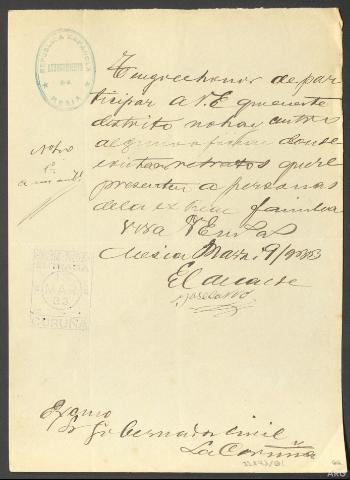 REPUBLICA ESPAÑOLA
AYUNTAMIENTO
DE
MESIA
Tengo el honor de par
ticipar a V.E. que en este
distrito no hay centro
alguno
existan retratos que re
presenten a personas
de la ex real familia
Viva V.E. m. as.
Mesia Marzo 9/1933
El Alcalde
MAR
33
CORUÑA
Exmo
Sr Gobernador civil
La Coruña